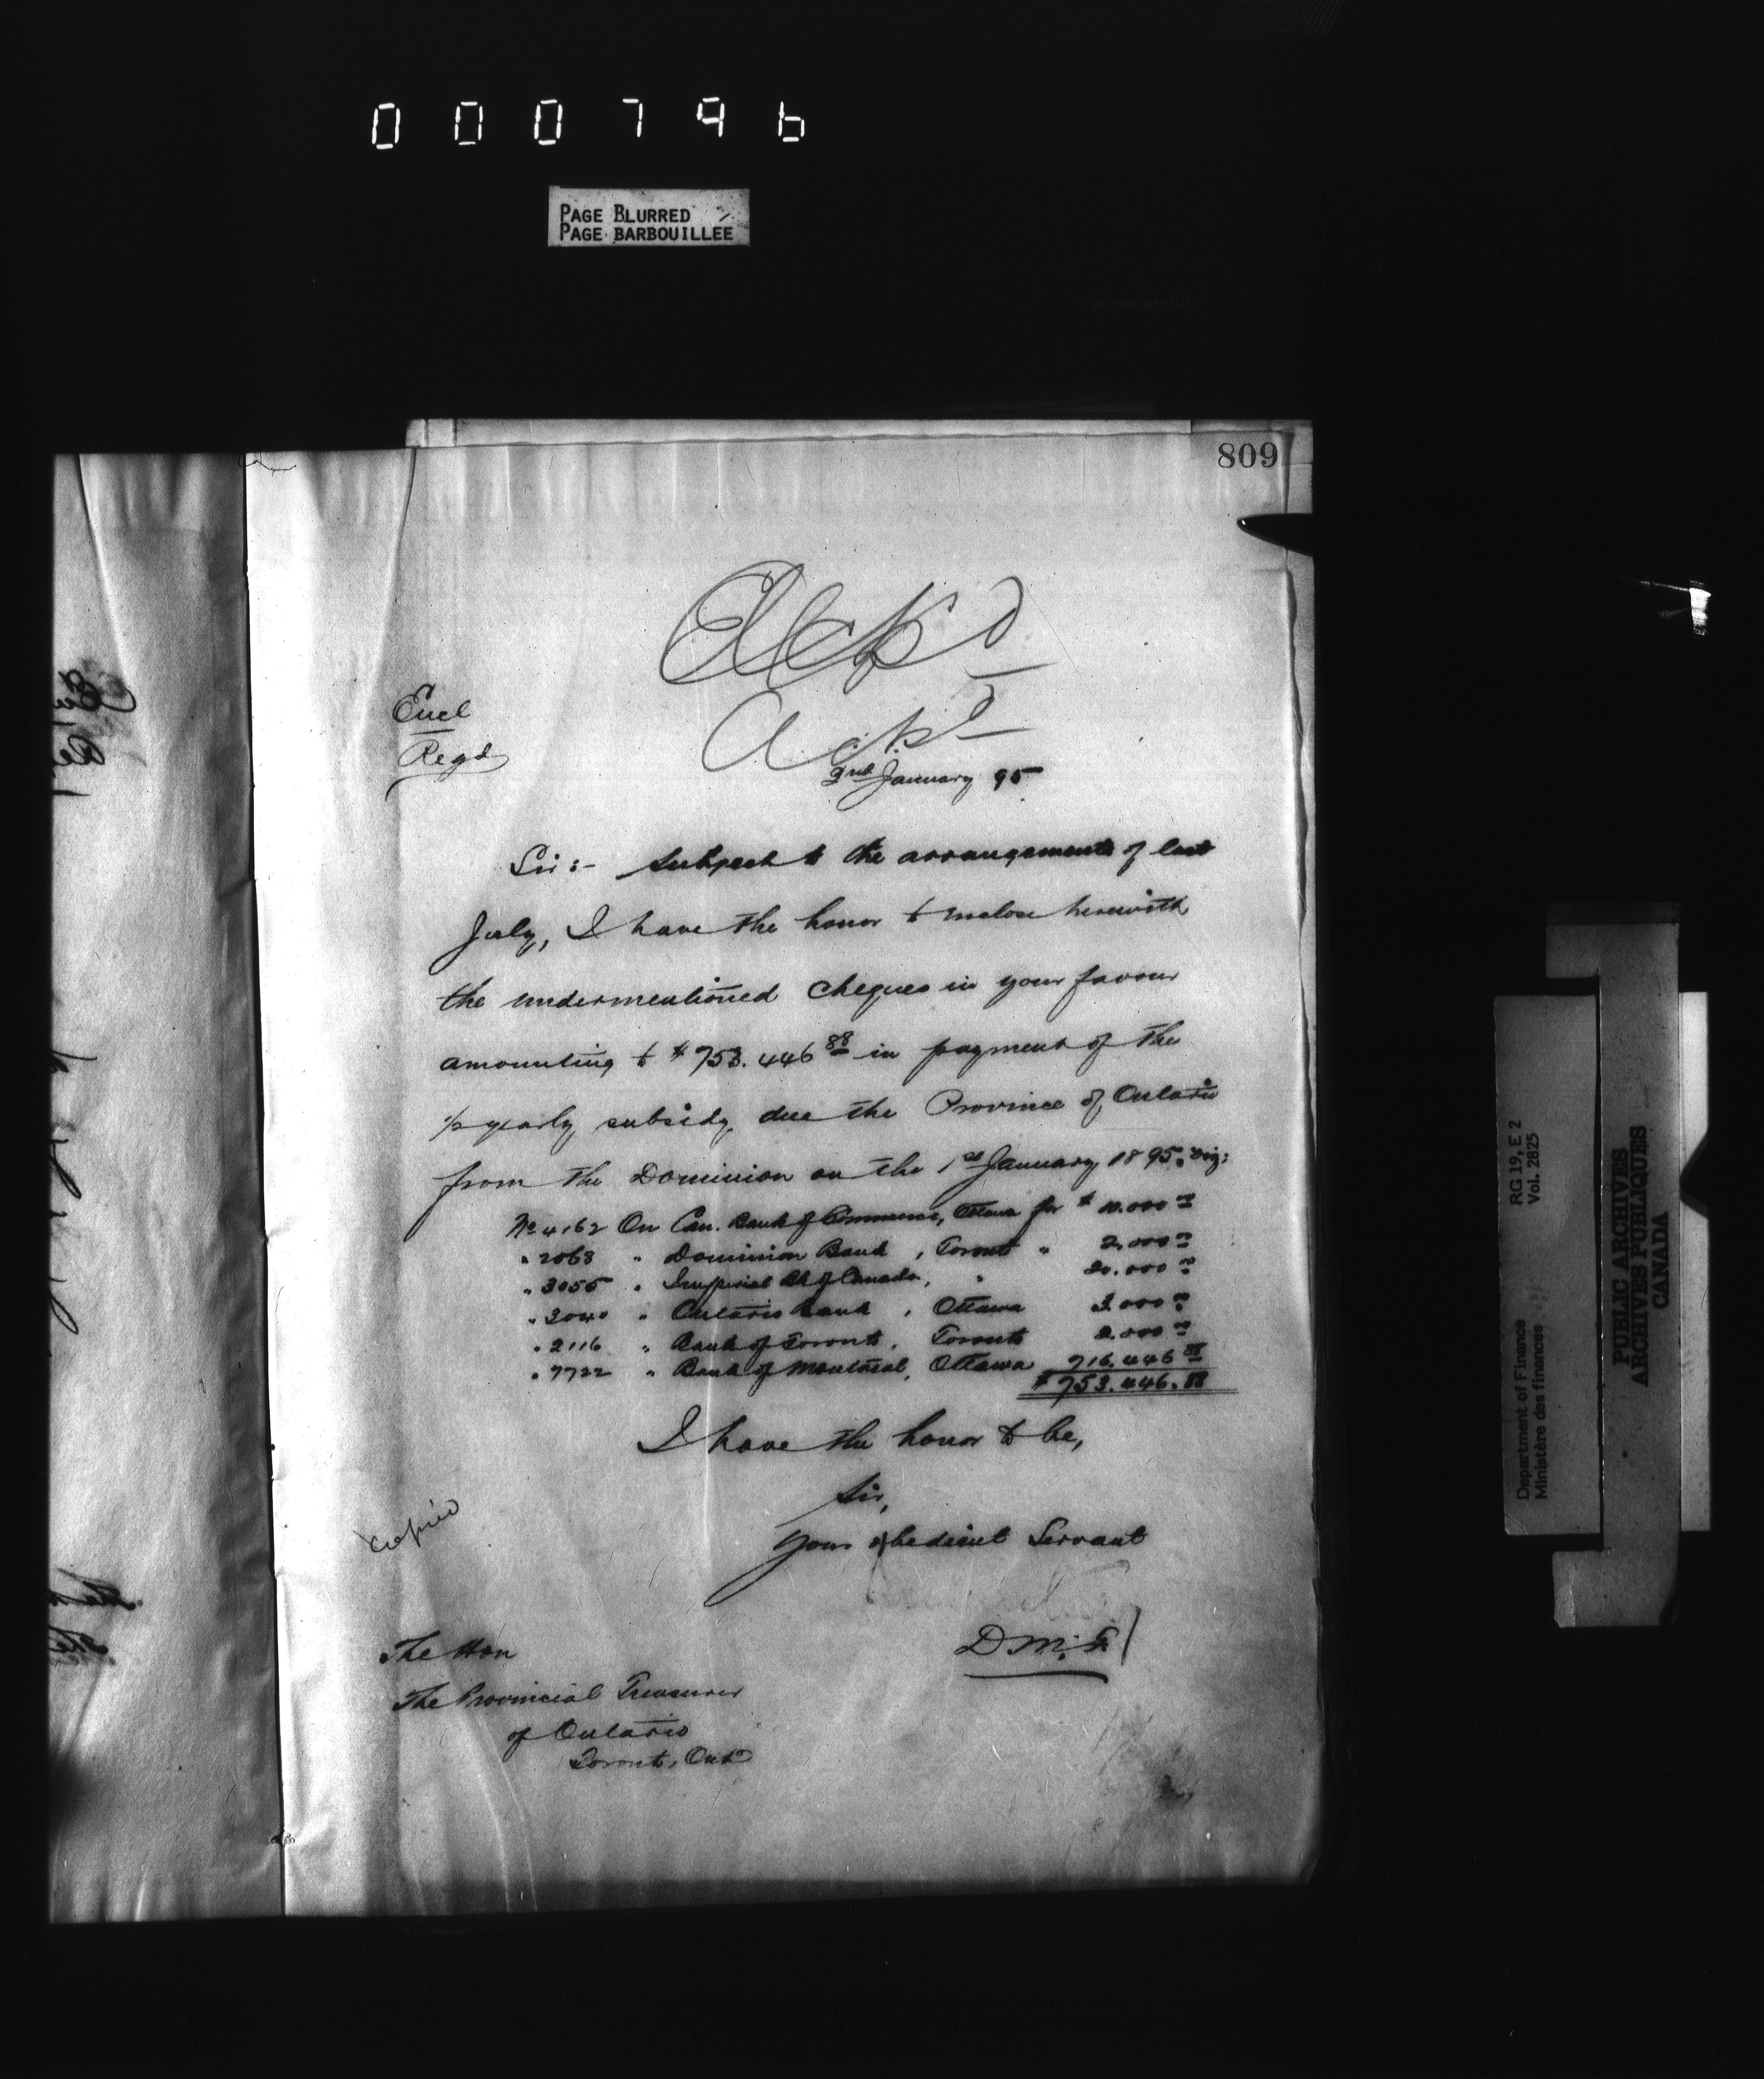 000796
PAGE BLURRED
PAGE BARBOUILLÉE
809
Ackd
Ackd
Encl
Regd
2nd January 95
Sir:- Subject to the arrangements of last
July, I have the honor to enclose herewith
the undermentioned cheques in your favour
amounting to $753.446 88 in payment of the
½ yearly subsidy due the Province of Ontario
from the Dominion on the 1st January 1895. viz:
No 4162 On Can. Bank of Commerce, Ottawa for $ 10.000 00
" 2063 " Dominion Bank, Toronto " 2.000 00
" 3055 " Imperial Bk of Canada, " 20.000 00
" 3040 " Ontario Bank, Ottawa 3.000 00
" 2116 " Bank of Toronto, Toronto 2.000 00
" 7722 " Bank of Montreal, Ottawa 716.446 88
$ 753.446.88
I have the honor to be,
Sir,
Your obedient Servant
D.M.F.
copied
The Hon
The Provincial Treasurer
of Ontario
Toronto, Ont
RG 19, E 2
Vol. 2825
Department of Finance
Ministère des finances
PUBLIC ARCHIVES
ARCHIVES PUBLIQUES
CANADA